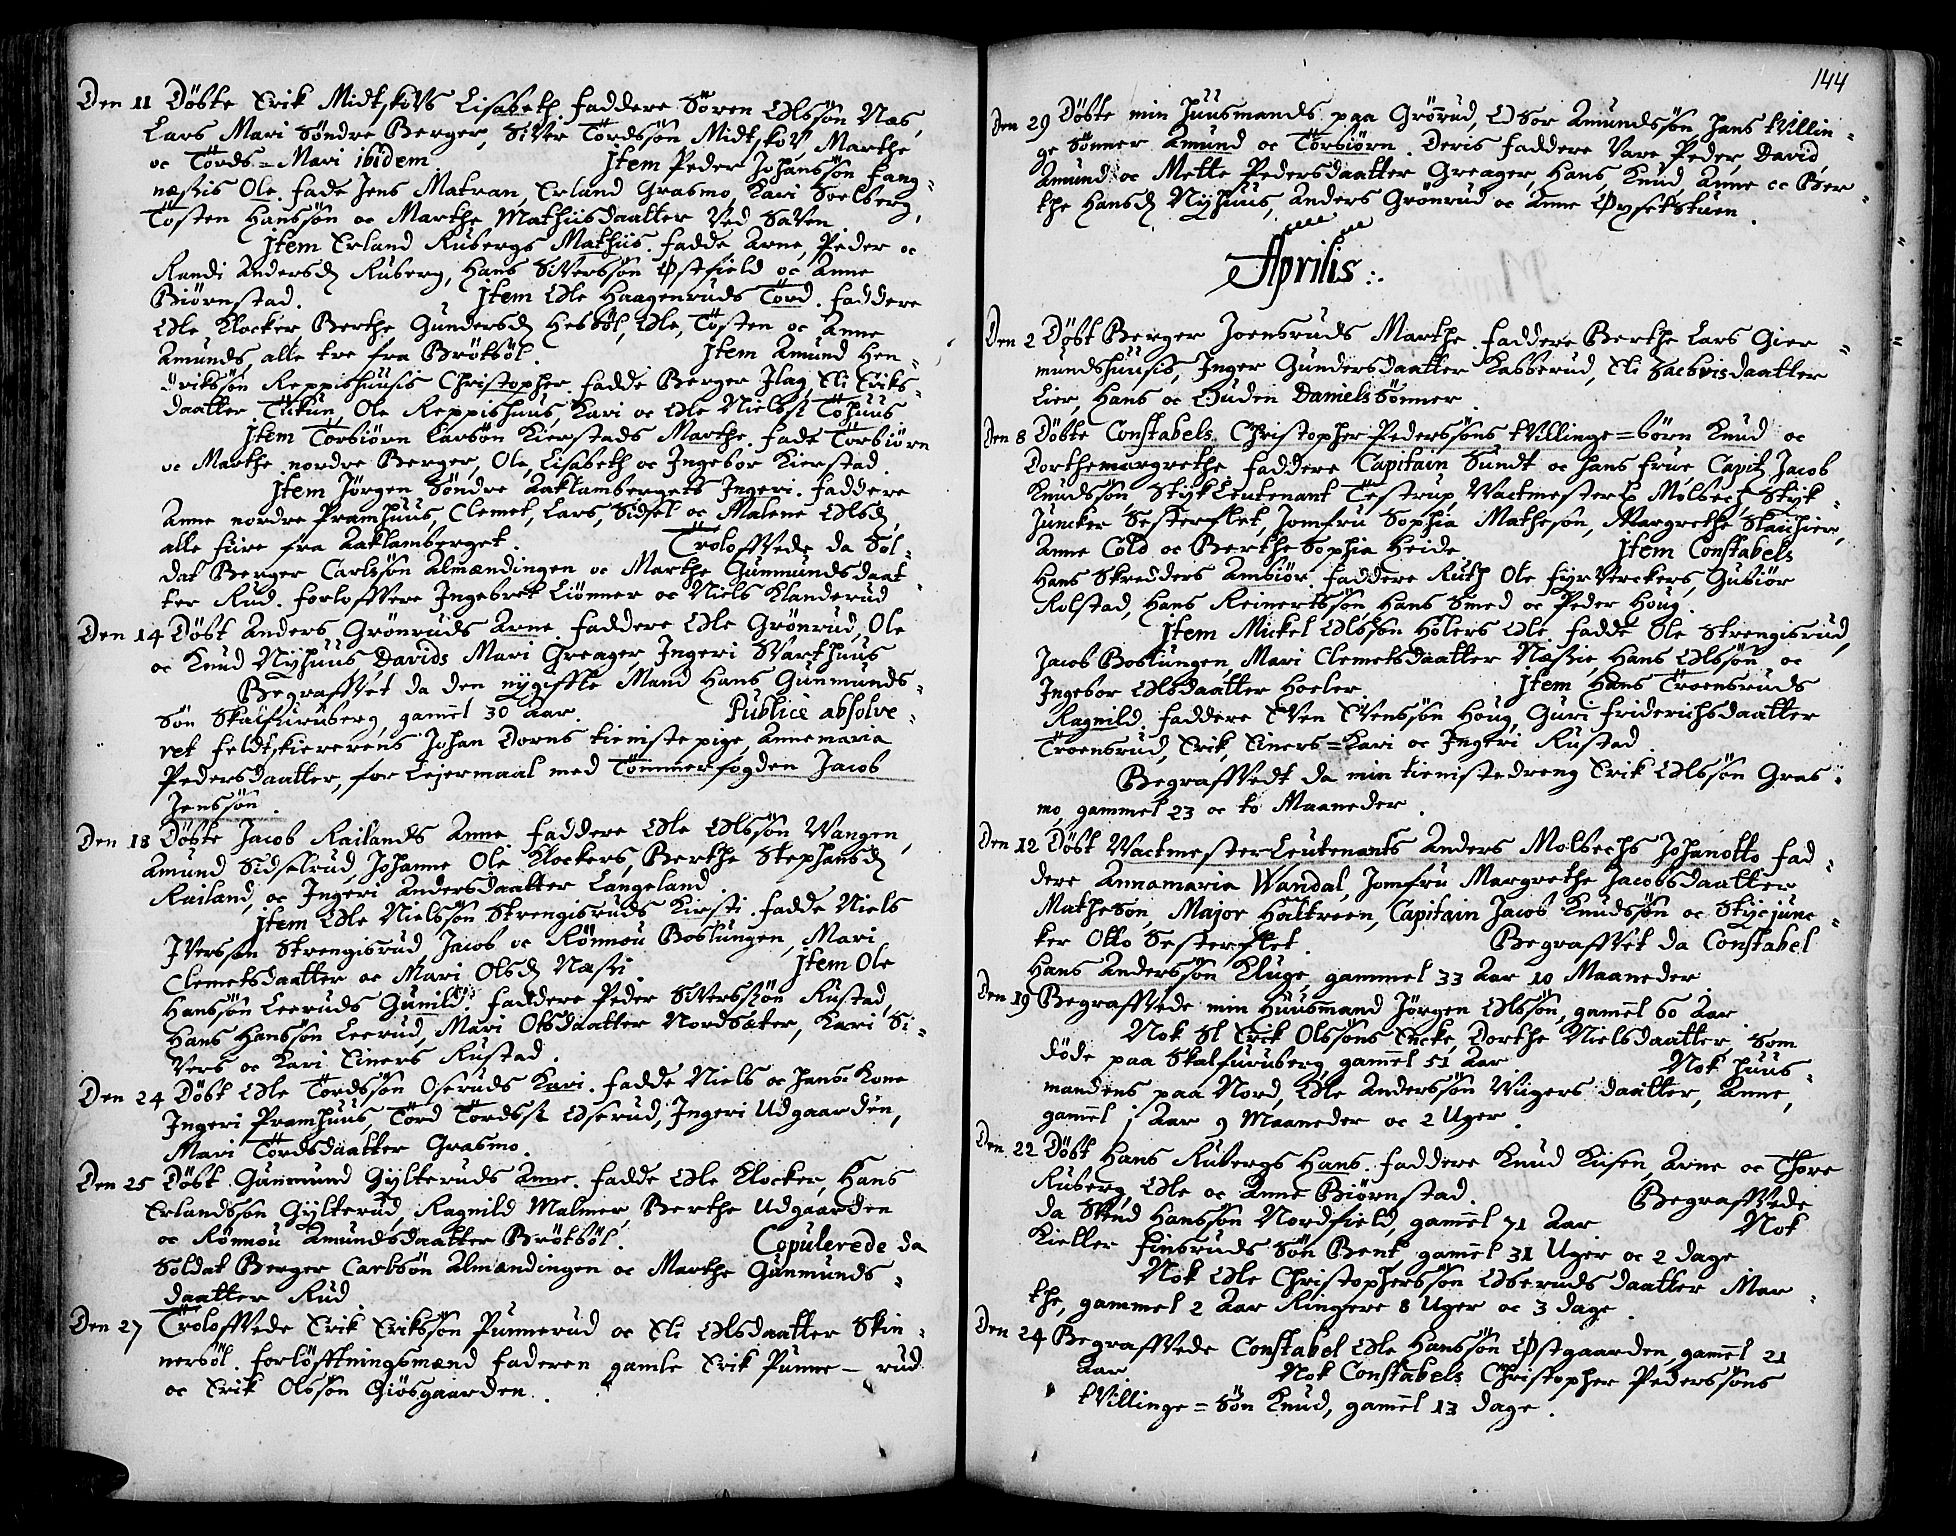 Den 11 Döbte Erik Midtskovs Lisabeth. faddere Sören Olssön Næs,
Lars Mari Söndre Berger, Siver Tordssön Midtskov, Marthe
oc Tords=Mari ibidem Jtem Peder Johanssön fang-
næssis Ole. fadd: Jens Matran, Erland Grasmo, Kari Soelberg,
Tosten Hanssön oc Marthe Mathiisdaatter ved Saven
Jtem Erland Rubergs Mathiis. fadde Arne, Peder oc
Randi Andersd: Ruberg, Hans Siverssön Østfield oc Anne
Biörnstad. Jtem Ole Haagenruds Törd. faddere
Ole Klocker, Berthe Gundersd: Hesböl, Ole, Tosten oc Anne
Amunds, alle tre fra Bröttböl. Jtem Amund Hen-
drikssön Reppishuusis Christopher. fadde Berger Jlag, Eli Eriks-
daatter Tickun, Ole Reppishuus, Kari oc Ole Nielssz Töhuus
Jtem Torbiörn Larsön Kierstads Marthe. fade Torbiörn
oc Marthe nordre Berger, Ole, Lisabeth oc Ingebor Kierstad.
Jtem Jörgen Söndre Aaklambergets Jngeri. faddere
Anne nordre Pramhuus, Clemet, Lars, Sidsel oc Malene Olsd:
alle fiire fra Aaklamberget. Troloffvede da Sol-
dat Berger Carlssön Almændingen oc Marthe Gunmundsdaat-
ter Rud. forloffvere Ingebret Liönner oc Niels Klanderud
Den 14 Döbt Anders Grönruds Arne. faddere Ole Grönrud, Ole
oc Knud Nyhuus, Davids Mari Greager, Jngeri Svarthuus
Begraffvet da den nygiffte Mand Hans Gunmunds-
sön Skalfuruberg, gamel 30 Aar. Publice absolve-
ret feldtskiererens Johan Dorns tienistepige, Annemaria
Pedersdaatter, for Lejermaal med Tömmerfogden Jacob
Jenssön.
Den 18 Döbte Jacob Railands Anne. faddere Ole Olssön Wangen,
Amund Sidselrud, Johanne Ole Klockers, Berthe Stephansd:
Railand, oc Jngeri Andersdaatter Langeland
Jtem Ole Nielssön Strengisruds Kirsti. fadde Niels
Jverssön Strengisrud, Jacob oc Rönnou Boslungen, Mari
Clemetsdaatter oc Mari Olsd: Næssi. Jtem Ole
Hansön Leeruds Gunild: faddere Peder Siverssön Rustad,
Hans Hanssön Leerud, Mari Olsdaatter Nordsæter, Kari Si-
vers oc Kari Einers Rustad.
Den 24 Döbt Ole Tordssön Oseruds Kari. fadde Niels oc hans Kone
Jngeri Pramhuus, Tord Tordssz Oserud, Jngeri Udgaarden,
Mari Tordsdaatter Grasmo.
Den 25 Döbt Gunmund Gylteruds Anne. fadde Ole Klocker, Hans
Erlandssön Gylterud, Ragnild Malmer, Berthe Udgaarden
oc Rönnou Amundsdaatter Bröttböl. Copulerede da
Soldat Berger Carlsön Almændingen oc Marthe Gunmunds-
daatter Rud
Den 27 Troloffvede Erik Erikssön Punnerud oc Eli Olsdaatter Skin-
nerböl. forlöfftningsmænd faderen gamle Erik Punne- rud
oc Erik Olssön Giösgaarden.
144
Den 29 Döbte min Huusmands paa Grönrud, Osor Amundssön, hans tvillin-
ge Sönner Amund oc Torbiörn. Deris faddere vare Peder, David,
Amund oc Mette Pedersdaatter Greager, Hans, Knud, Anne oc Ber-
the Hansd: Nyhuus, Anders Grönrud oc Anne Øvsetstuen.
Aprilis:.
Den 2 Döbt Berger Joensruds Marthe. faddere Berthe Lars Gier-
mundshuusis, Jnger Gundersdaatter Kabberud, Eli Sacbrisdaatter
Lier, Hans oc Guden Daniels Sönner.
Den 8 Döbte Constabels Christopher Pederssöns tvillinge=börn Knud oc
Dorthemargrethe. faddere Capitain Sundt oc hans frue, Capit: Jacob
Knudssön, StykLeutenant Testrup, Vactmester L: Molbech, Styk-
Juncker Sesterflet, Jomfru Sophia Matheson, Margrethe Stauhier,
Anne Cold oc Berthe Sophia Heide. Jtem Constabels
Hans Skredders Ambiör. faddere Ruth Ole fyrverckers, Gubiör
Rolstad, Hans Reinertssön, Hans Smed oc Peder Houg.
Jtem Mickel Olssön Holers Ole. fadde Ole Strengisrud,
Jacob Boslungen, Mari Clemetsdaatter Næssie, Hans Olssön oc
Jngebor Olsdaatter Hoeler. Jtem Hans Troensruds
Ragnild. faddere Sven Svenssön Houg, Guri Friderichsdaatter
Troensrud, Erik Einers=Kari oc Jngeri Rustad.
Begraffvedt da min tienistedreng Erik Olssön Gras-
mo, gammel 23 oc to Maaneder.
Den 12 Döbt VactmesterLeutenants Anders Molbechs Johanotto. fad-
dere Annamaria Wandal, Jomfru Margrethe Jacobsdaatter
Matheson, Major Holtreen, Capitain Jacob Knudssön oc Stycjunc-
ker Otto Sesterflet. Begraffvet da Constabel
Hans Anderssön Kluge, gammel 33 Aar 10 Maaneder
Den 19 Begraffvede min Huusmand Jörgen Olssön, gamel 60 Aar.
Nok Sl Erik Olssöns Encke, Dorthe Nielsdaatter, Som
döde paa Skalfuruberg, gamel 51 Aar. Nok Huus-
mandens paa Nord, Ole Anderssön Wiigers daatter, Anne,
gamel 1 Aar 9 Maaneder oc 2 Uger.
Den 22 Döbt Hans Rubergs Hans. faddere Knud Kiisen, Arne oc Thore
Ruberg, Ole oc Anne Biörnstad. Begraffvede
da Svend Hanssön Nordfield, gamel 71 Aar. Nok
Kieller Finsruds Sön Bent, gamel 31 Uger oc 2 dage
Nok Ole Christopherssön Oseruds daatter Mar-
the, gammel 2 Aar Ringere 8 Uger oc 3 dage.
Den 24 Begraffvede Constabel Ole Hanssön Østgaarden, gamel 21
Aar. Nok Constabels Christopher Pederssöns
tvillinge=Sön Knud, gamel 13 dage.